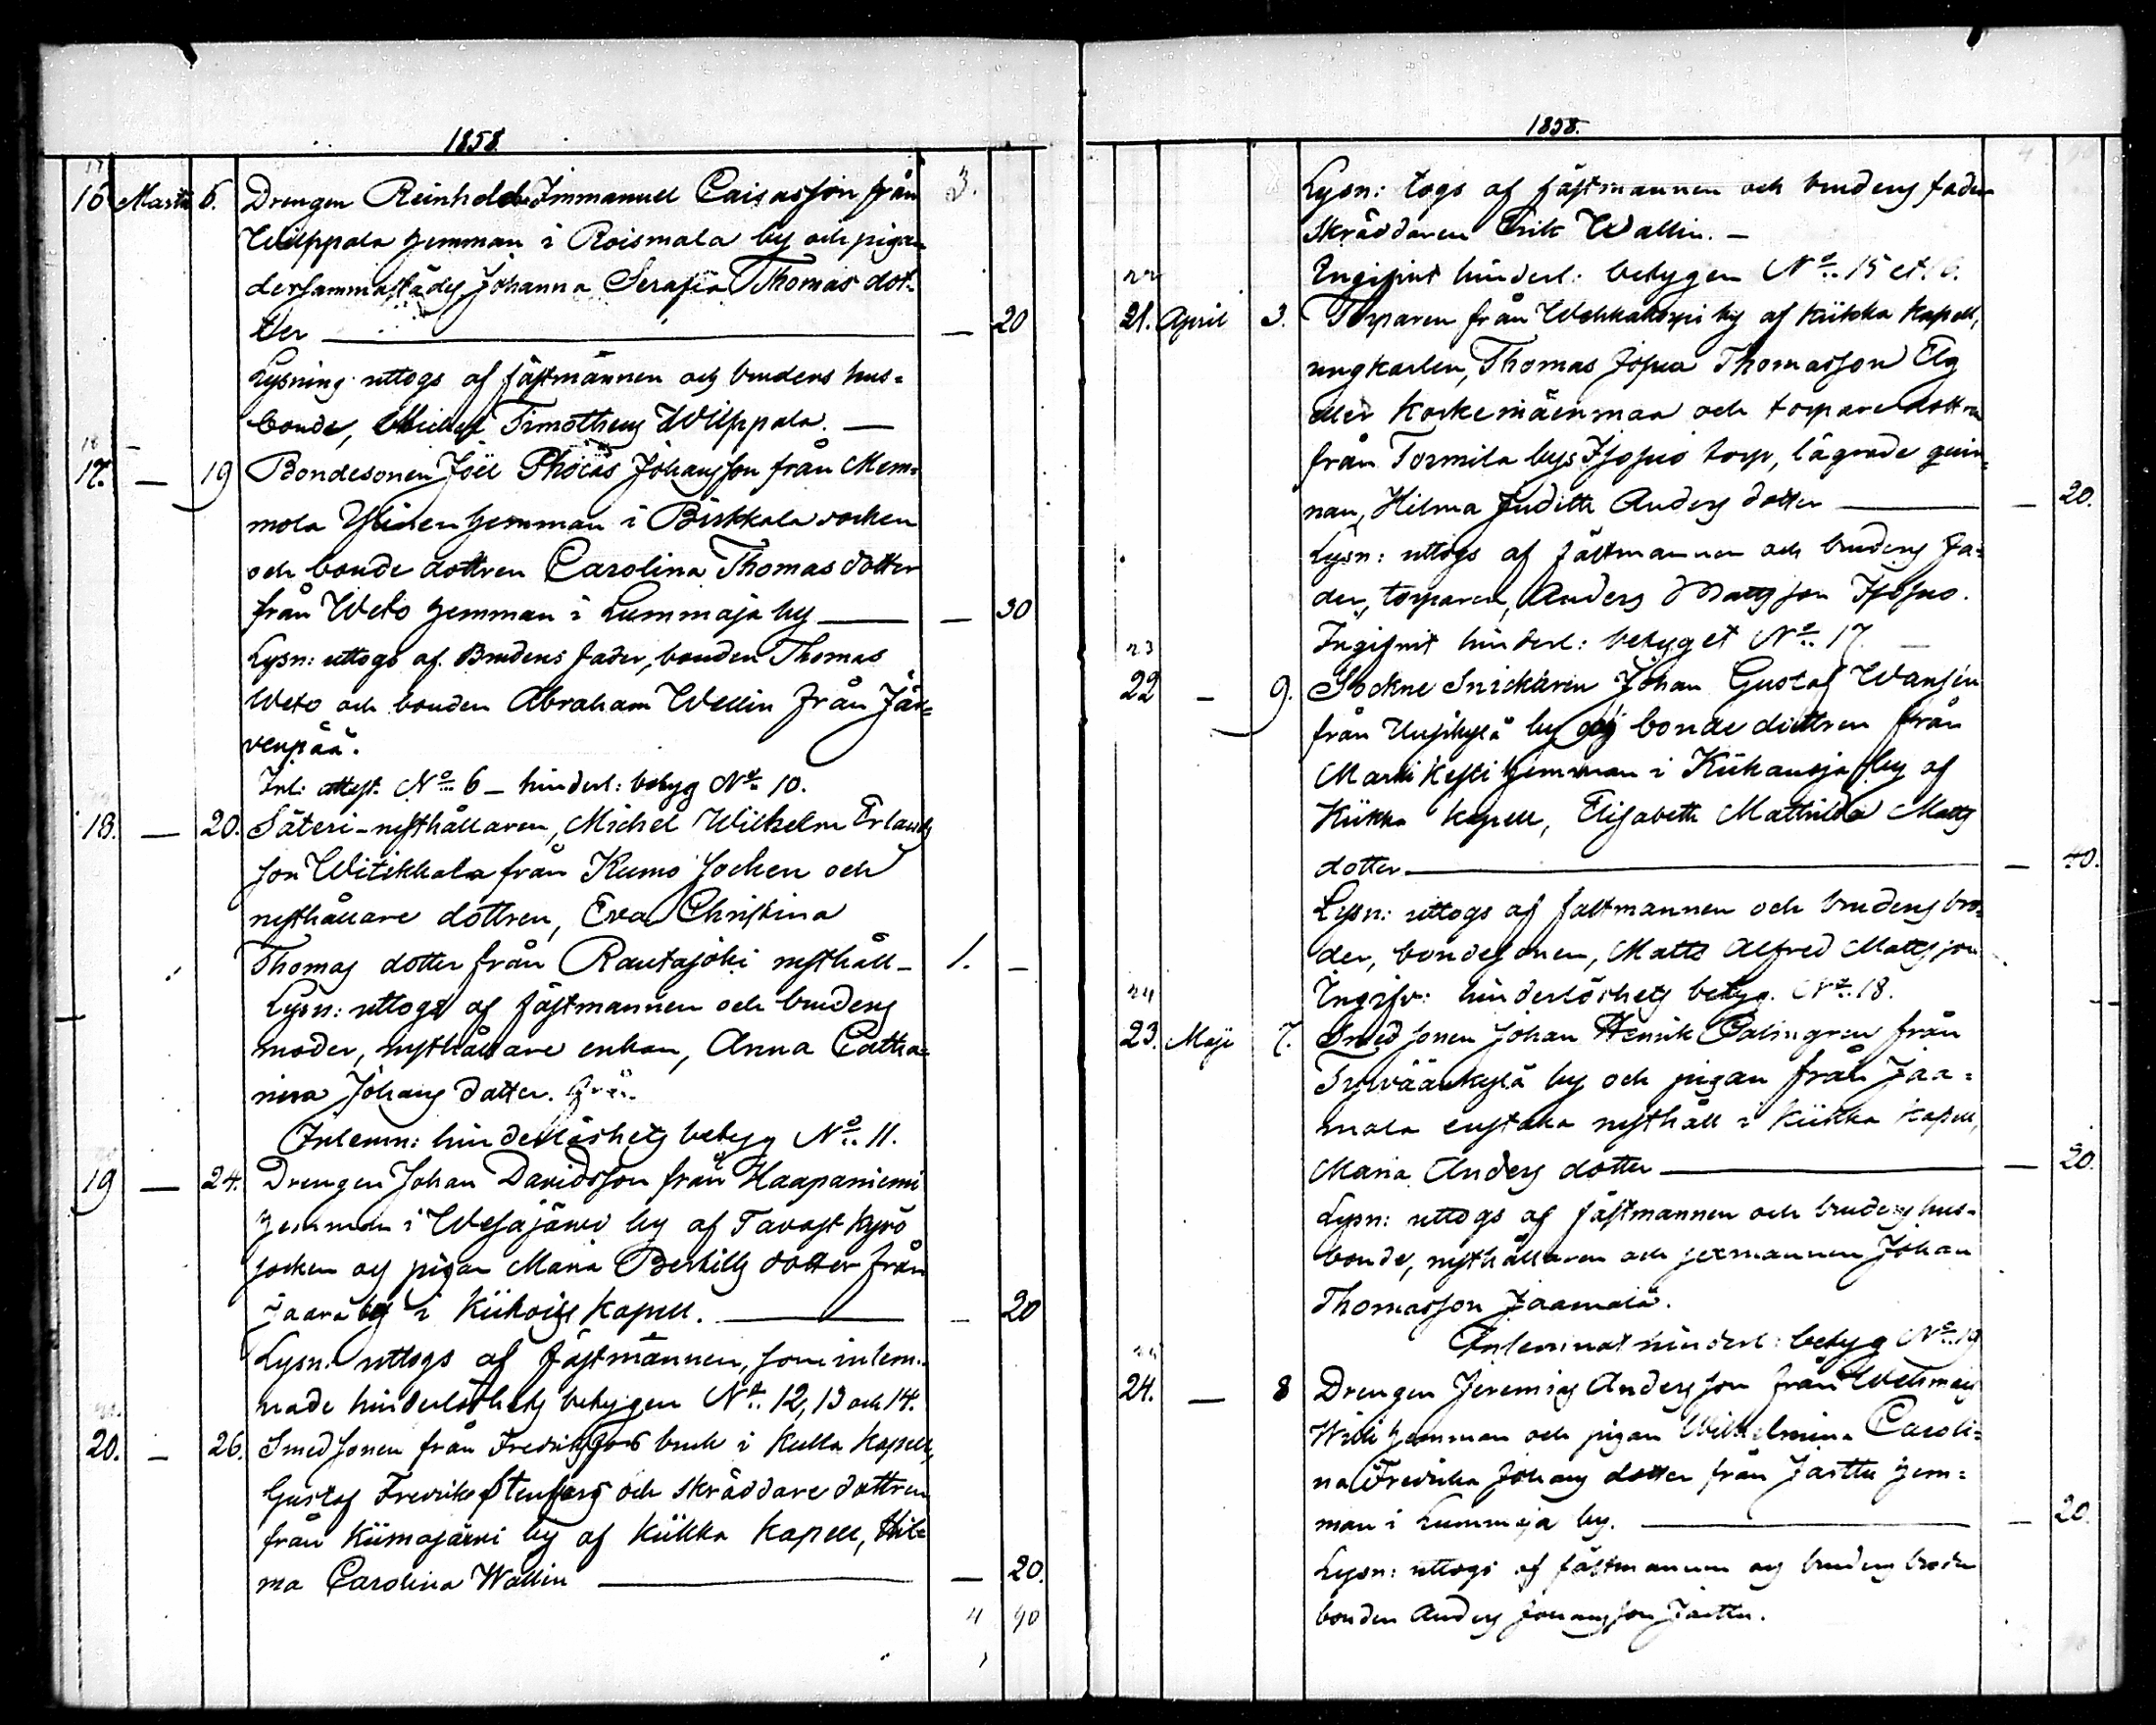 1858.
16 Martii 6. Drengen Reinhold Immanuel Caisasson från 3.
Wilppala hemman i Roismala by och pigan
dersammastädes Johanna Serafia Thomas dot-
ter — 20
Lysning uttogs af fästmannen och brudens hus-
bonde, Michel Timotheus Wilppala. —
17. — 19 Bondesonen Joel Phocas Johansson från Mem-
mola Yinen hemman i Birkkala socken
och bonde dottren Carolina Thomas dotter
från Weto hemman i Lummaja by — 30
Lysn: uttogs af Brudens fader, bonden Thomas
Weto och bonden Abraham Wellin från Jär-
venpää.
Inl: attest. No 6 – hinderl: betyg No 10.
18. — 20. Säteri-rusthållaren, Michel Wilhelm Erlands
son Witikkala från Kumo socken och
rusthållare dottren, Eva Christina
Thomas dotter från Rautajoki rusthåll – 1. —
Lysn: uttogs af fästmannen och brudens
moder, rusthållare enkan, Anna Catha-
rina Johans dotter.
Inlemn: hinderlöshets betyg No 11.
19 — 24. Drengen Johan Davidsson från Haapaniemi
hemman i Wesajärvi by af Tavast Kyrö
socken och pigan Maria Bertills dotter från
Jaara by i Kiikois Kapell. — 20
Lysn: uttogs af fästmannen, som inlem-
nade hinderlöshets betygen No 12, 13 och 14.
20. — 26. Smedsonen från Fredriksfors bruk i Kulla Kapell,
Gustaf Fredrik Stenfors och skräddare dottren
från Kiimajärvi by af Kiikka Kapell, Hil-
ma Carolina Wallin — 20.
4 90
1858.
Lysn: togs af fästmannen och brudens fader
skräddaren Erik Wallin. —
22
Ingifvit hinderl: betygen No 15 et 16.
21. April 3. Torparen från Wehkakorpi by af Kiikka Kapell,
ungkarlen, Thomas Josua Thomasson Elg
eller Korkemäenmaa och torpare dottren
från Tormila bys torp, lägrade quin-
nan, Hilma Judith Anders dotter — 20.
Lysn: uttogs af fästmannen och brudens fa-
der, torparen, Anders Mattsson
23
Ingifvit hinderl: betyget No 17. —
22 — 9. Sockne Snickaren Johan Gustaf Wansén
från by och bonde dottren från
Marki Kesti hemman i Kiikansja by af
Kiikka Kapell, Elisabeth Mathilda Matts
dotter — 40.
Lysn: uttogs af fästmannen och brudens bro-
der, bondesonen, Matts Alfred Mattsson
24
Ingifv: hinderlöshets betyg. No 18.
23. Maji 7. Smedsonen Johan Henrik Palmgren från
Tyrväänkylä by och pigan från Jaa-
mala rusthåll i Kiikka Kapell,
Maria Anders dotter — 20.
Lysn: uttogs af fästmannen och brudens hus-
bonde, rusthållaren och sexmannen Johan
Thomasson Jaamala.
Inlemnat hinderl: betyg No 19
24. — 8 Drengen Jeremias Andersson från
hemman och pigan Wilhelmina Caroli-
na Fredrika Johans dotter från Jaettu hem-
man i Lummaja by. — 20.
Lysn: uttogs af fästmannen och brudens broder
bonden Anders Johansson Jaettu.